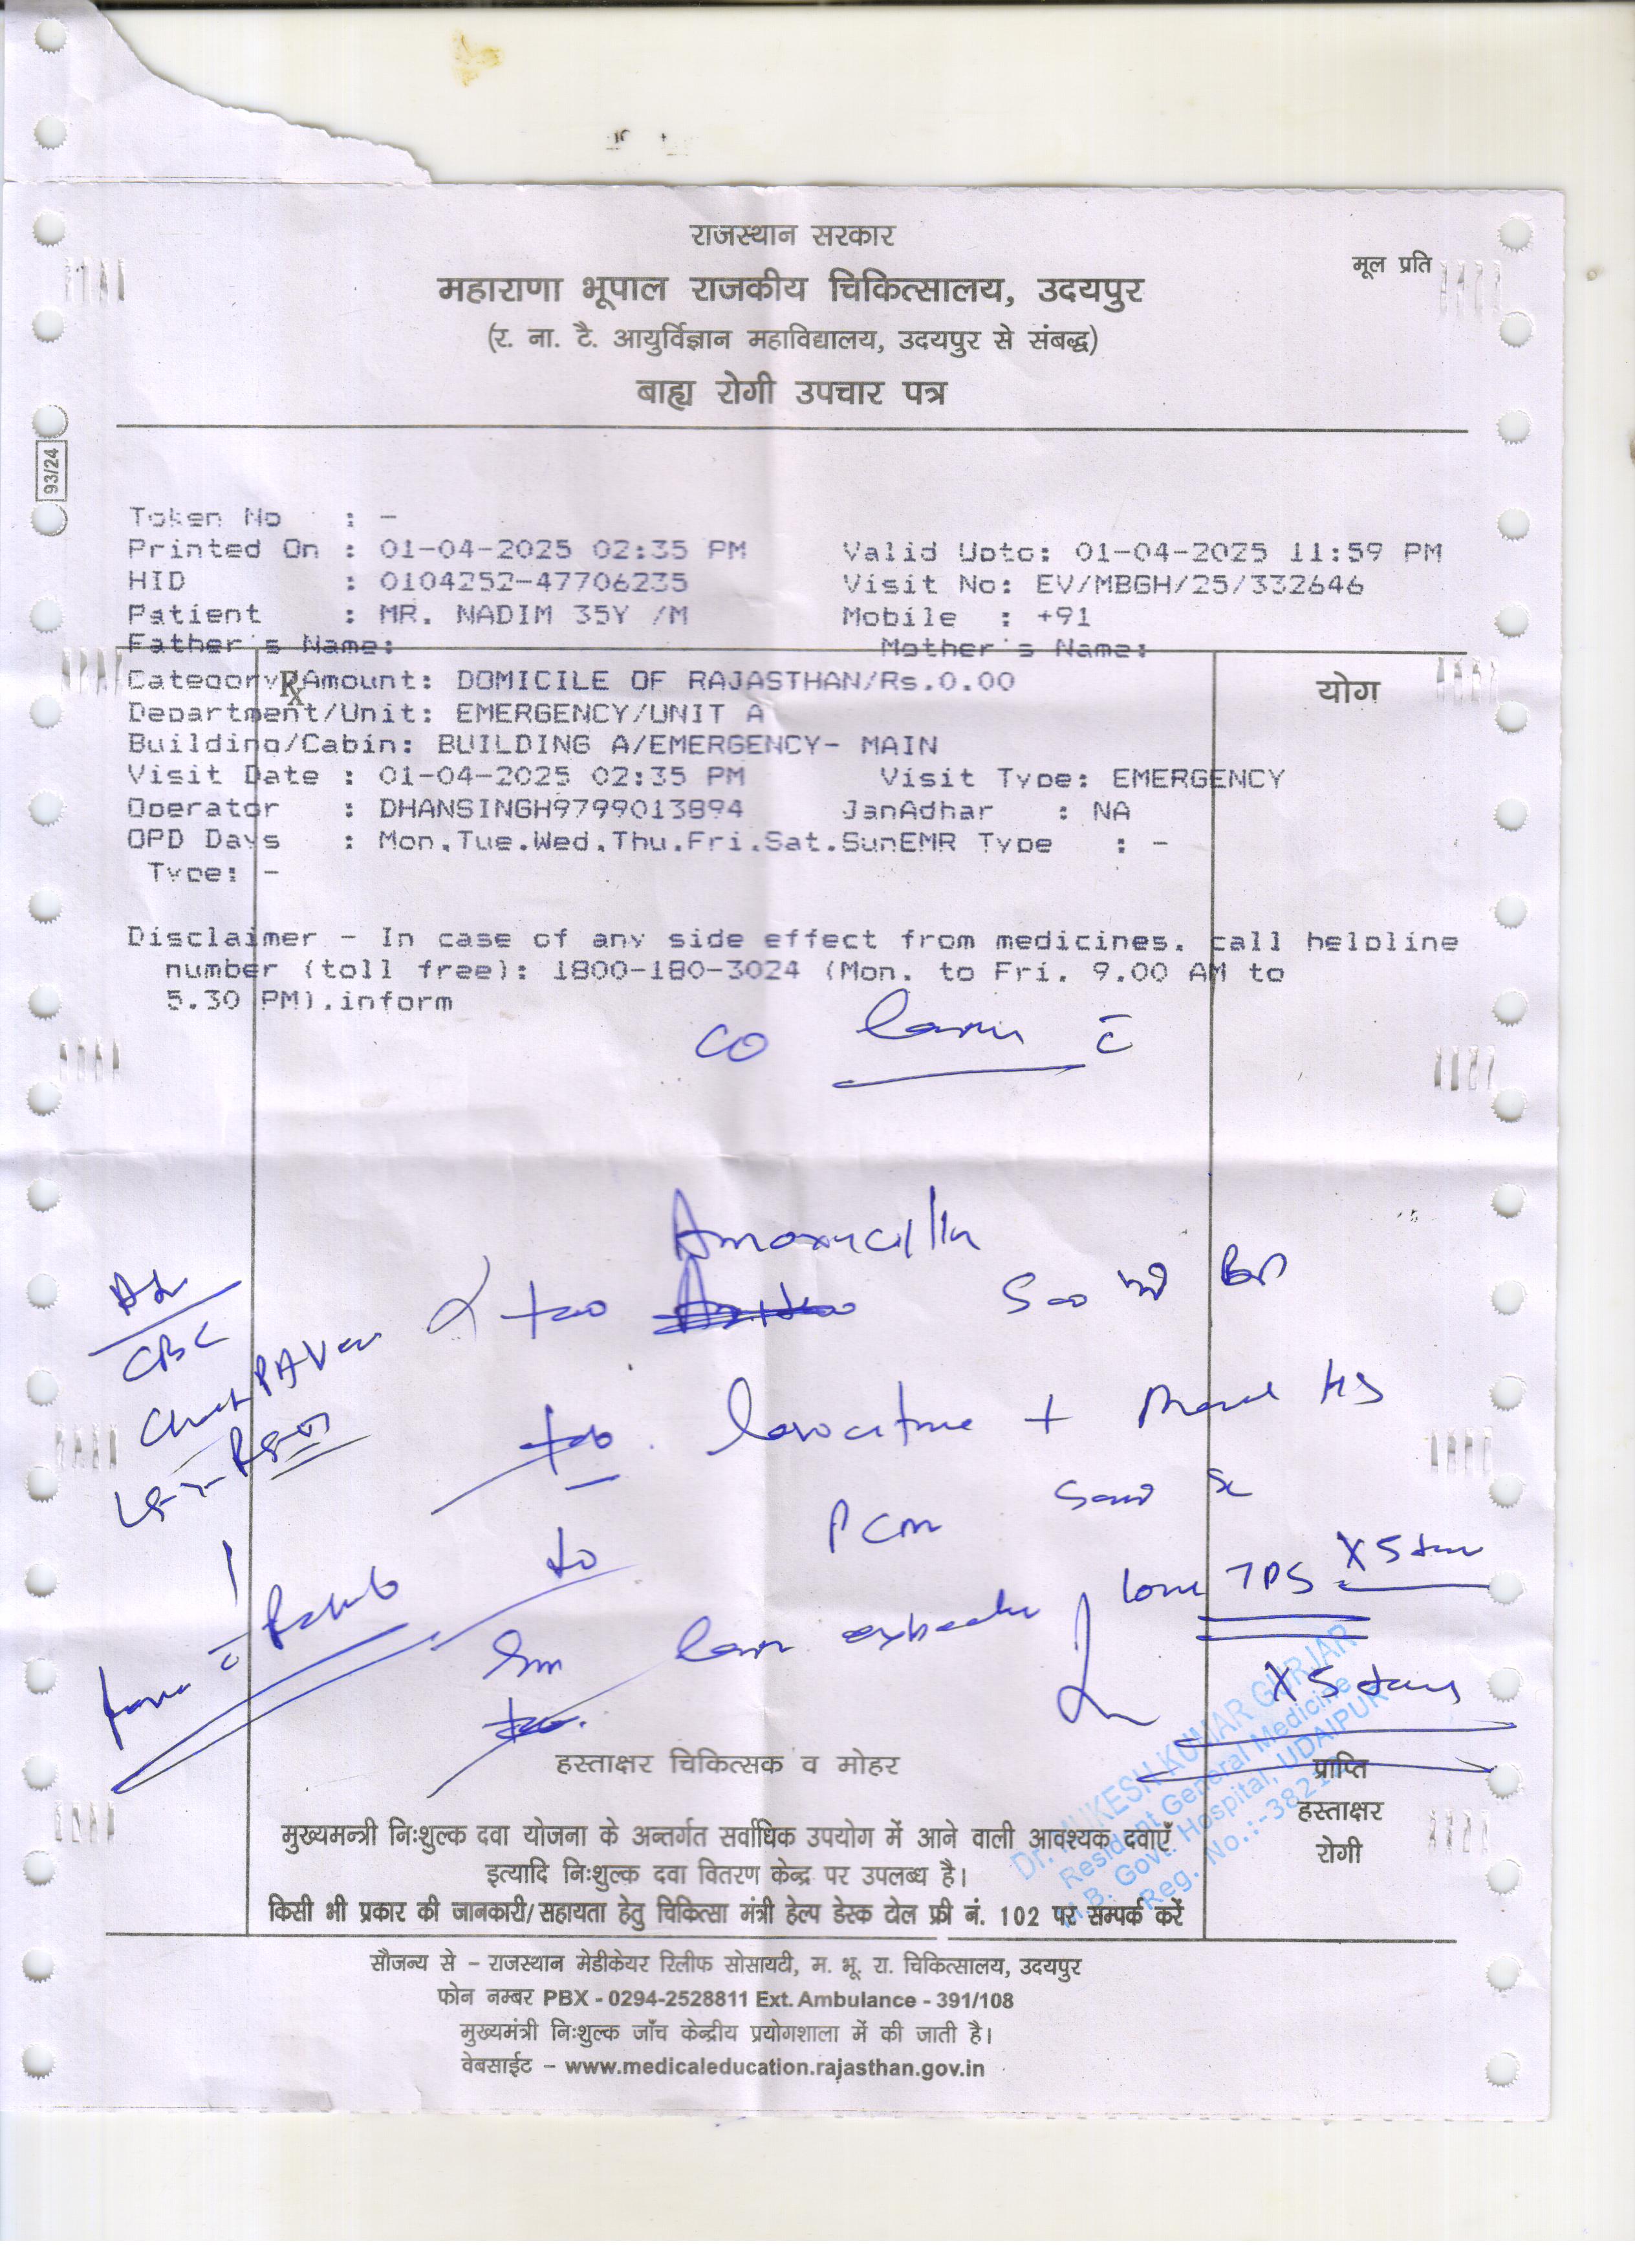 राजस्थान सरकार
मूल प्रति
महाराणा भूपाल राजकीय चिकित्सालय, उदयपुर
(र. ना. टै. आयुर्विज्ञान महाविद्यालय, उदयपुर से संबद्ध)
बाह्य रोगी उपचार पत्र
93/24
Token No : -
Printed On : 01-04-2025 02:35 PM Valid Upto: 01-04-2025 11:59 PM
HID : 0104252-47706235 Visit No: EV/MBGH/25/332646
Patient : MR. NADIM 35Y /M Mobile : +91
Father's Name: Mother's Name:
Category/Amount: DOMICILE OF RAJASTHAN/Rs.0.00
Rx
योग
Department/Unit: EMERGENCY/UNIT A
Building/Cabin: BUILDING A/EMERGENCY- MAIN
Visit Date : 01-04-2025 02:35 PM Visit Type: EMERGENCY
Operator : DHANSINGH9799013894 JanAdhar : NA
OPD Days : Mon,Tue,Wed,Thu,Fri,Sat,SunEMR Type : -
Type: -
Disclaimer - In case of any side effect from medicines, call helpline
number (toll free): 1800-180-3024 (Mon. to Fri. 9.00 AM to
5.30 PM).inform
CO
Amoxycillin
CBC
+ HS
PCM
TDS X 5
X 5 days
Dr. MUKESH KUMAR GURJAR
Resident General Medicine
M.B. Govt. Hospital, UDAIPUR
हस्ताक्षर चिकित्सक व मोहर
प्राप्ति
हस्ताक्षर
रोगी
मुख्यमन्त्री निःशुल्क दवा योजना के अन्तर्गत सर्वाधिक उपयोग में आने वाली आवश्यक दवाएँ
इत्यादि निःशुल्क दवा वितरण केन्द्र पर उपलब्ध है।
किसी भी प्रकार की जानकारी/सहायता हेतु चिकित्सा मंत्री हेल्प डेस्क टोल फ्री नं. 102 पर सम्पर्क करें
सौजन्य से - राजस्थान मेडीकेयर रिलीफ सोसायटी, म. भू. रा. चिकित्सालय, उदयपुर
फोन नम्बर PBX - 0294-2528811 Ext. Ambulance - 391/108
मुख्यमंत्री निःशुल्क जाँच केन्द्रीय प्रयोगशाला में की जाती है।
वेबसाईट - www.medicaleducation.rajasthan.gov.in